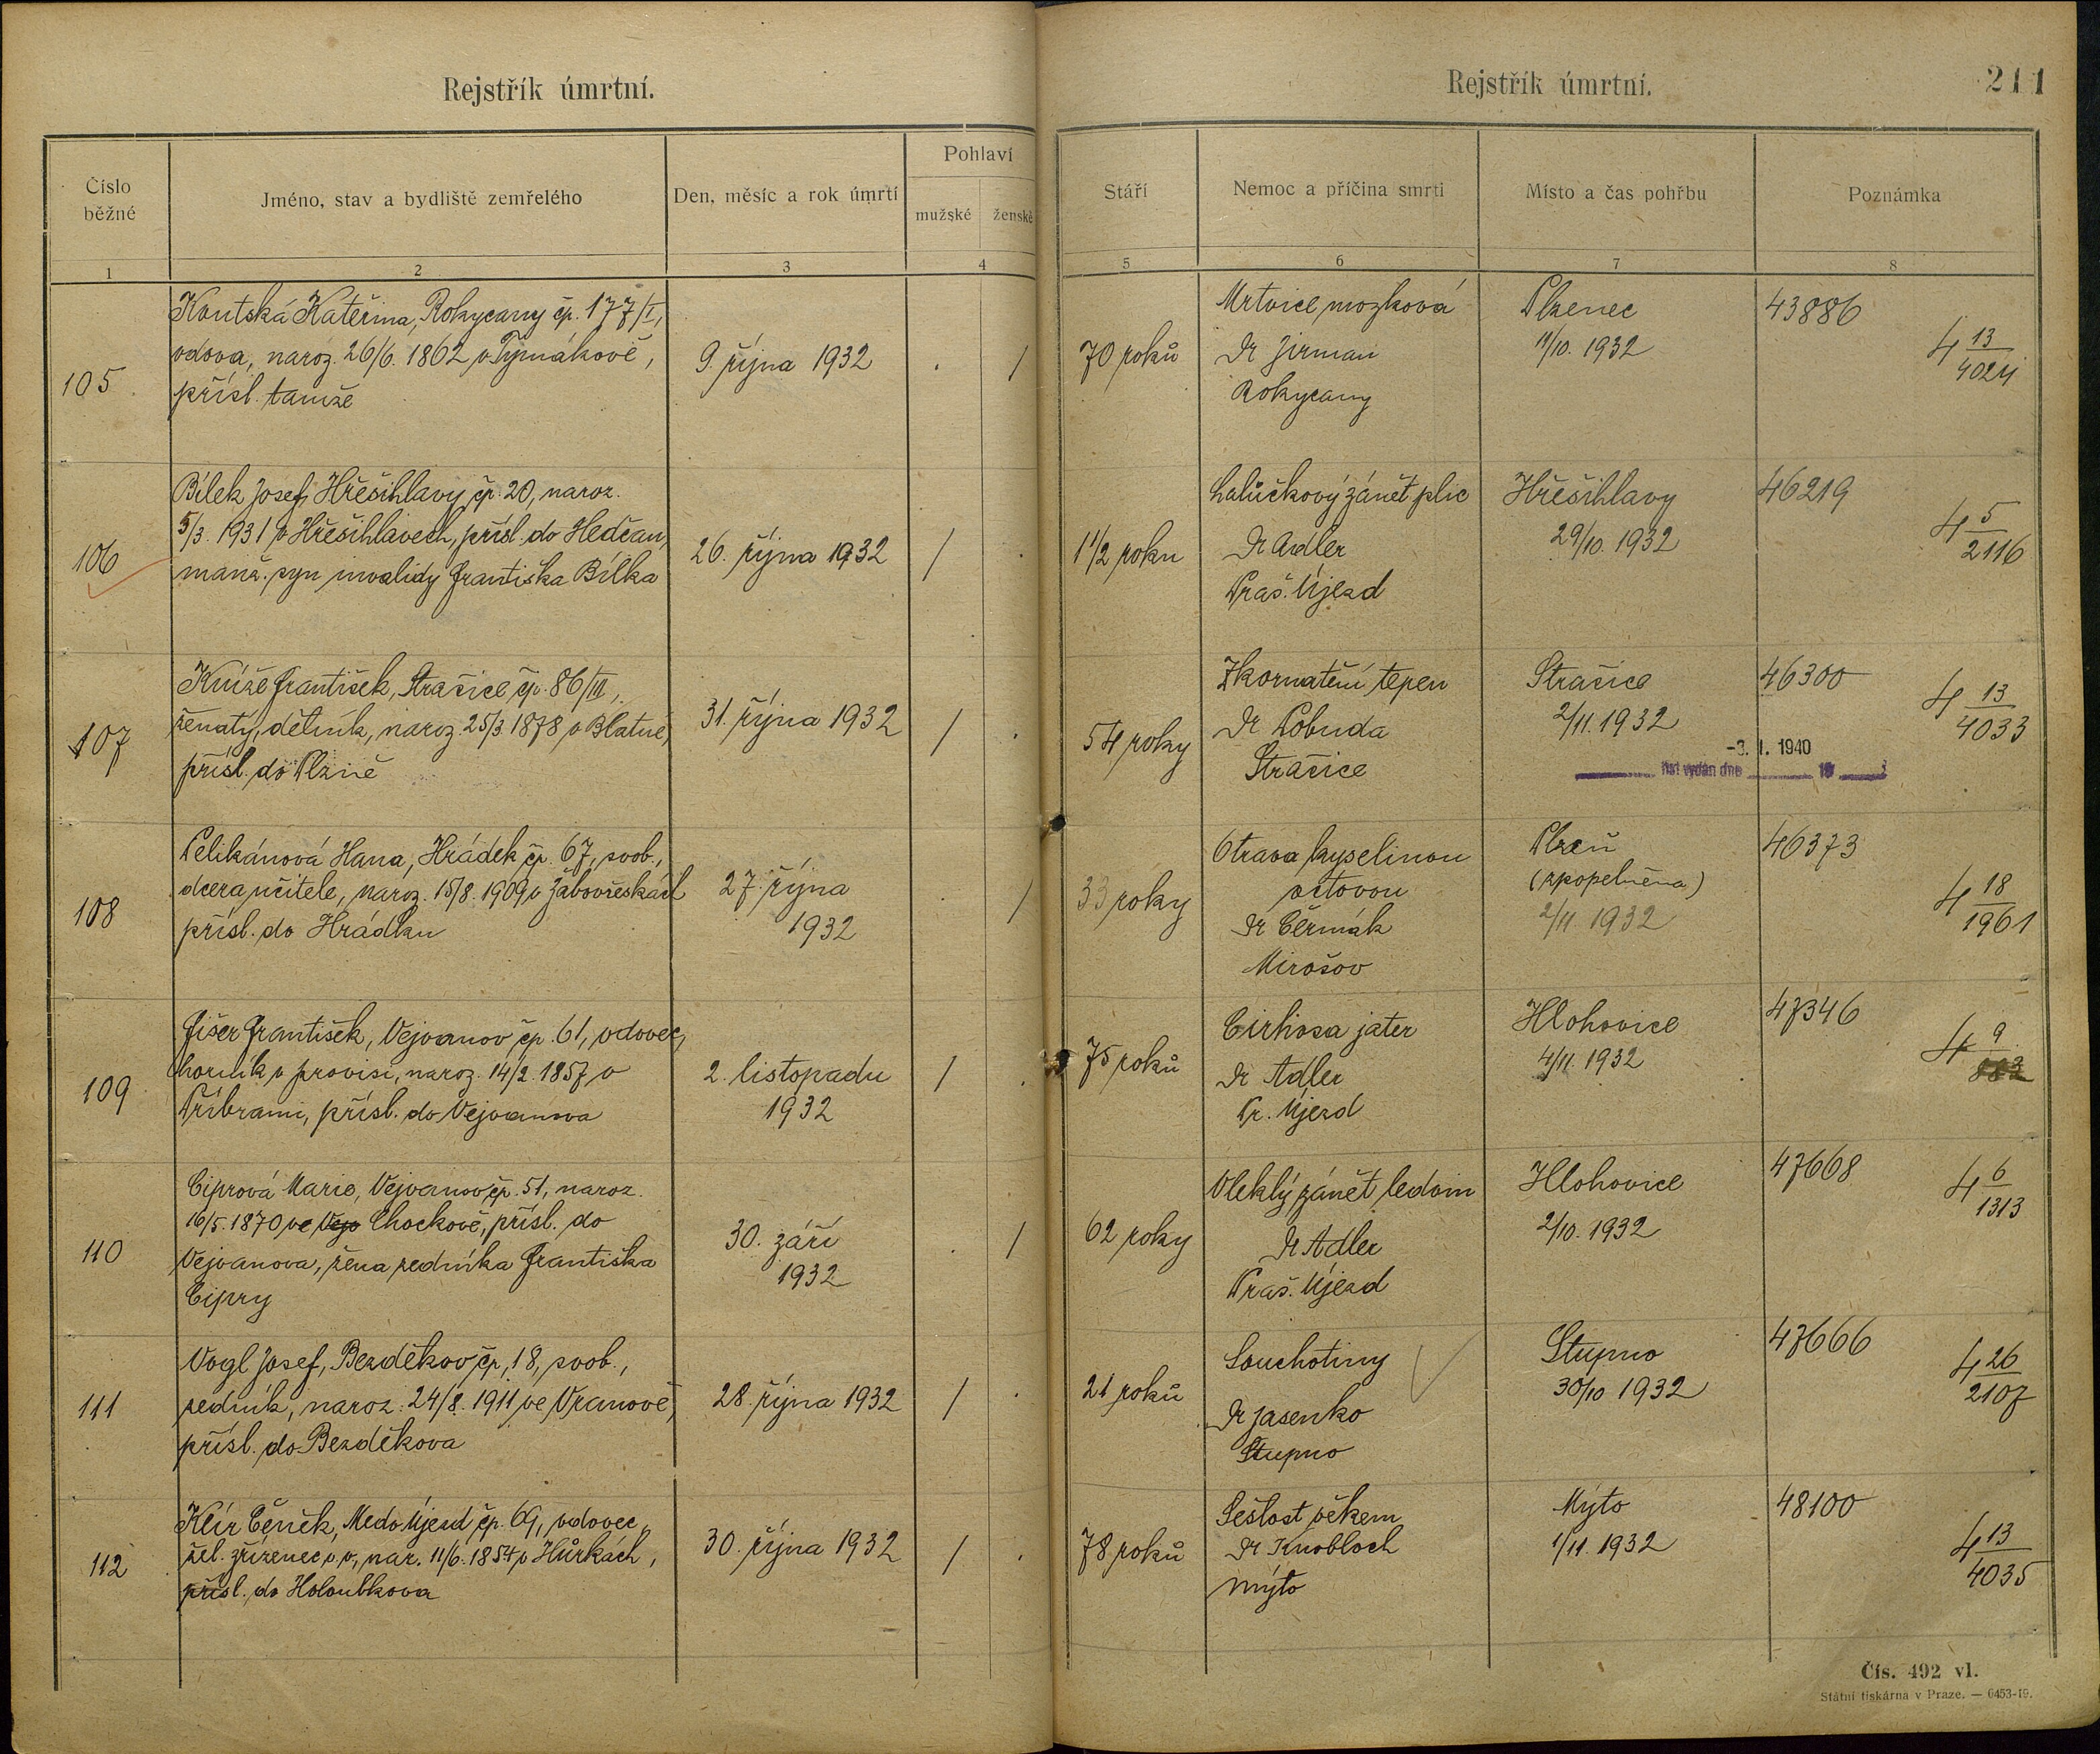 Rejstřík úmrtní.
Číslo běžné
Jméno, stav a bydliště zemřelého
Den, měsíc a rok úmrtí
Pohlaví
mužské
ženské
1
2
3
4
105
Koutská Kateřina, Rokycany čp. 177/I,
vdova, naroz. 26/6. 1862 v Tymákově,
přísl. tamže
9. října 1932
. /
106
Bílek Josef, Hřešihlavy čp. 20, naroz.
5/3. 1931 v Hřešihlavech, přísl. do Hedčan,
manž. syn invalidy Františka Bílka
26. října 1932
/ .
107
Kníže František, Strašice čp. 86/III,
ženatý, dělník, naroz. 25/3 1878 v Blatné,
přísl. do Plzně
31. října 1932
/ .
108
Pelikánová Hana, Hrádek čp. 67, svob.,
dcera učitele, naroz. 15/8. 1909 v Žabovřeskách
přísl. do Hrádku
27. října
1932
. /
109
Fišer František, Vejvanov čp. 61, vdovec,
horník v provisi, naroz. 14/2. 1857 v
Příbrami, přísl. do Vejvanova
2. listopadu
1932
/ .
110
Ciprová Marie, Vejvanov čp. 51, naroz.
16/5. 1870 ve Vejv Chockově, přísl. do
Vejvanova, žena zedníka Františka
Cipry
30. září
1932
. /
111
Vogl Josef, Bezděkov čp. 18, svob.,
zedník, naroz. 24/8. 1911 ve Vranově,
přísl. do Bezděkova
28. října 1932
/ .
112
Klír Čeněk, Medo Újezd čp. 69, vdovec,
žel. zřízenec v. v., nar. 11/6. 1854 v Hůrkách,
přísl. do Holoubkova
30. října 1932
/ .
Rejstřík úmrtní.
211
Stáří
Nemoc a příčina smrti
Místo a čas pohřbu
Poznámka
5
6
7
8
70 roků
Mrtvice mozková
Dr Jirman
Rokycany
Plzenec
11/10. 1932
43886
4 13/4024
1 1/2 roku
Lalůčkový zánět plic
Dr Adler
Praš. Újezd
Hřešihlavy
29/10. 1932
46219
4 5/2116
54 roky
Zkornatění tepen
Dr Lobuda
Strašice
Strašice
2/11. 1932
46300
4 13/4033
-3. I. 1940
list vydán dne 19
33 roky
Otrava kyselinou
octovou
Dr Čermák
Mirošov
Plzeň
(zpopelněna)
2/11 1932
46373
4 18/1961
75 roků
Cirhosa jater
Dr Adler
Pr. Újezd
Hlohovice
4/11. 1932
47346
4 9/883
62 roky
Vleklý zánět ledvin
Dr Adler
Praš. Újezd
Hlohovice
2/10. 1932
47668
4 6/1313
21 roků
Souchotiny
Dr Jasenko
Stupno
Stupno
30/10 1932
47666
4 26/2107
78 roků
Sešlost věkem
Dr Knobloch
Mýto
Mýto
1/11. 1932
48100
4 13/4035
Čís. 492 vl.
Státní tiskárna v Praze. — 6453-19.